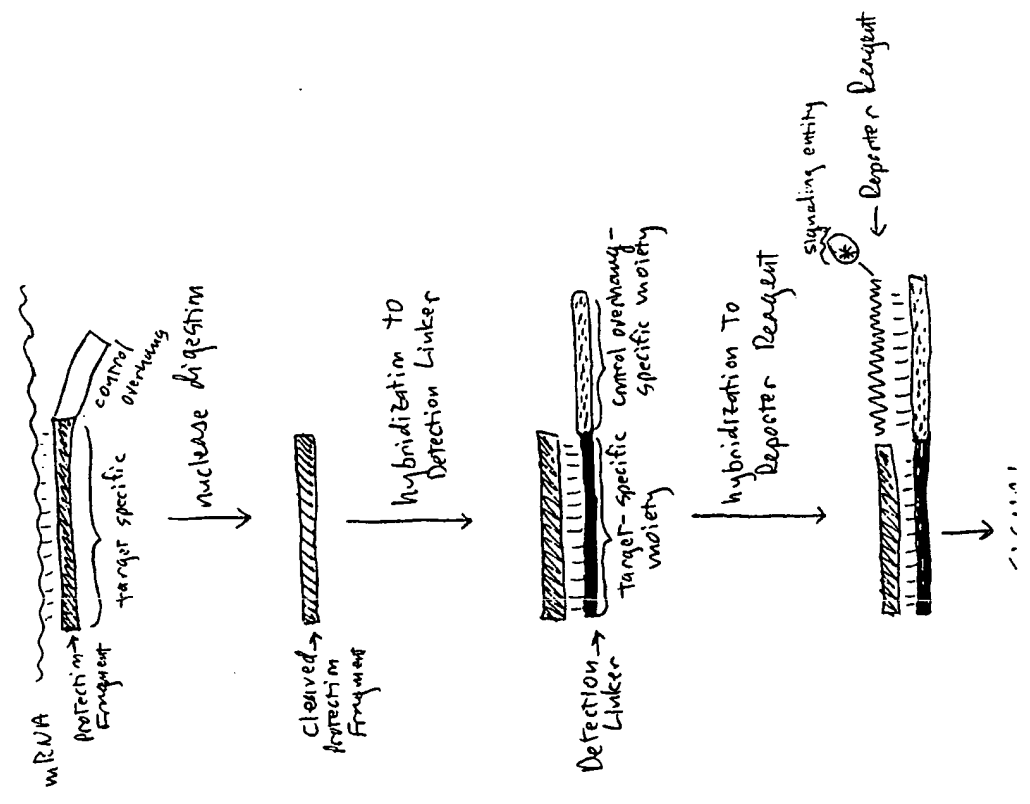 mRNA
Protection →
Fragment
target specific
control
overhang
nuclease digestion
Cleaved →
protection
Fragment
hybridization to
Detection Linker
Detection →
Linker
target-specific
moiety
control overhang-
specific moiety
hybridization To
Reporter Reagent
signaling entity
*
← Reporter Reagent